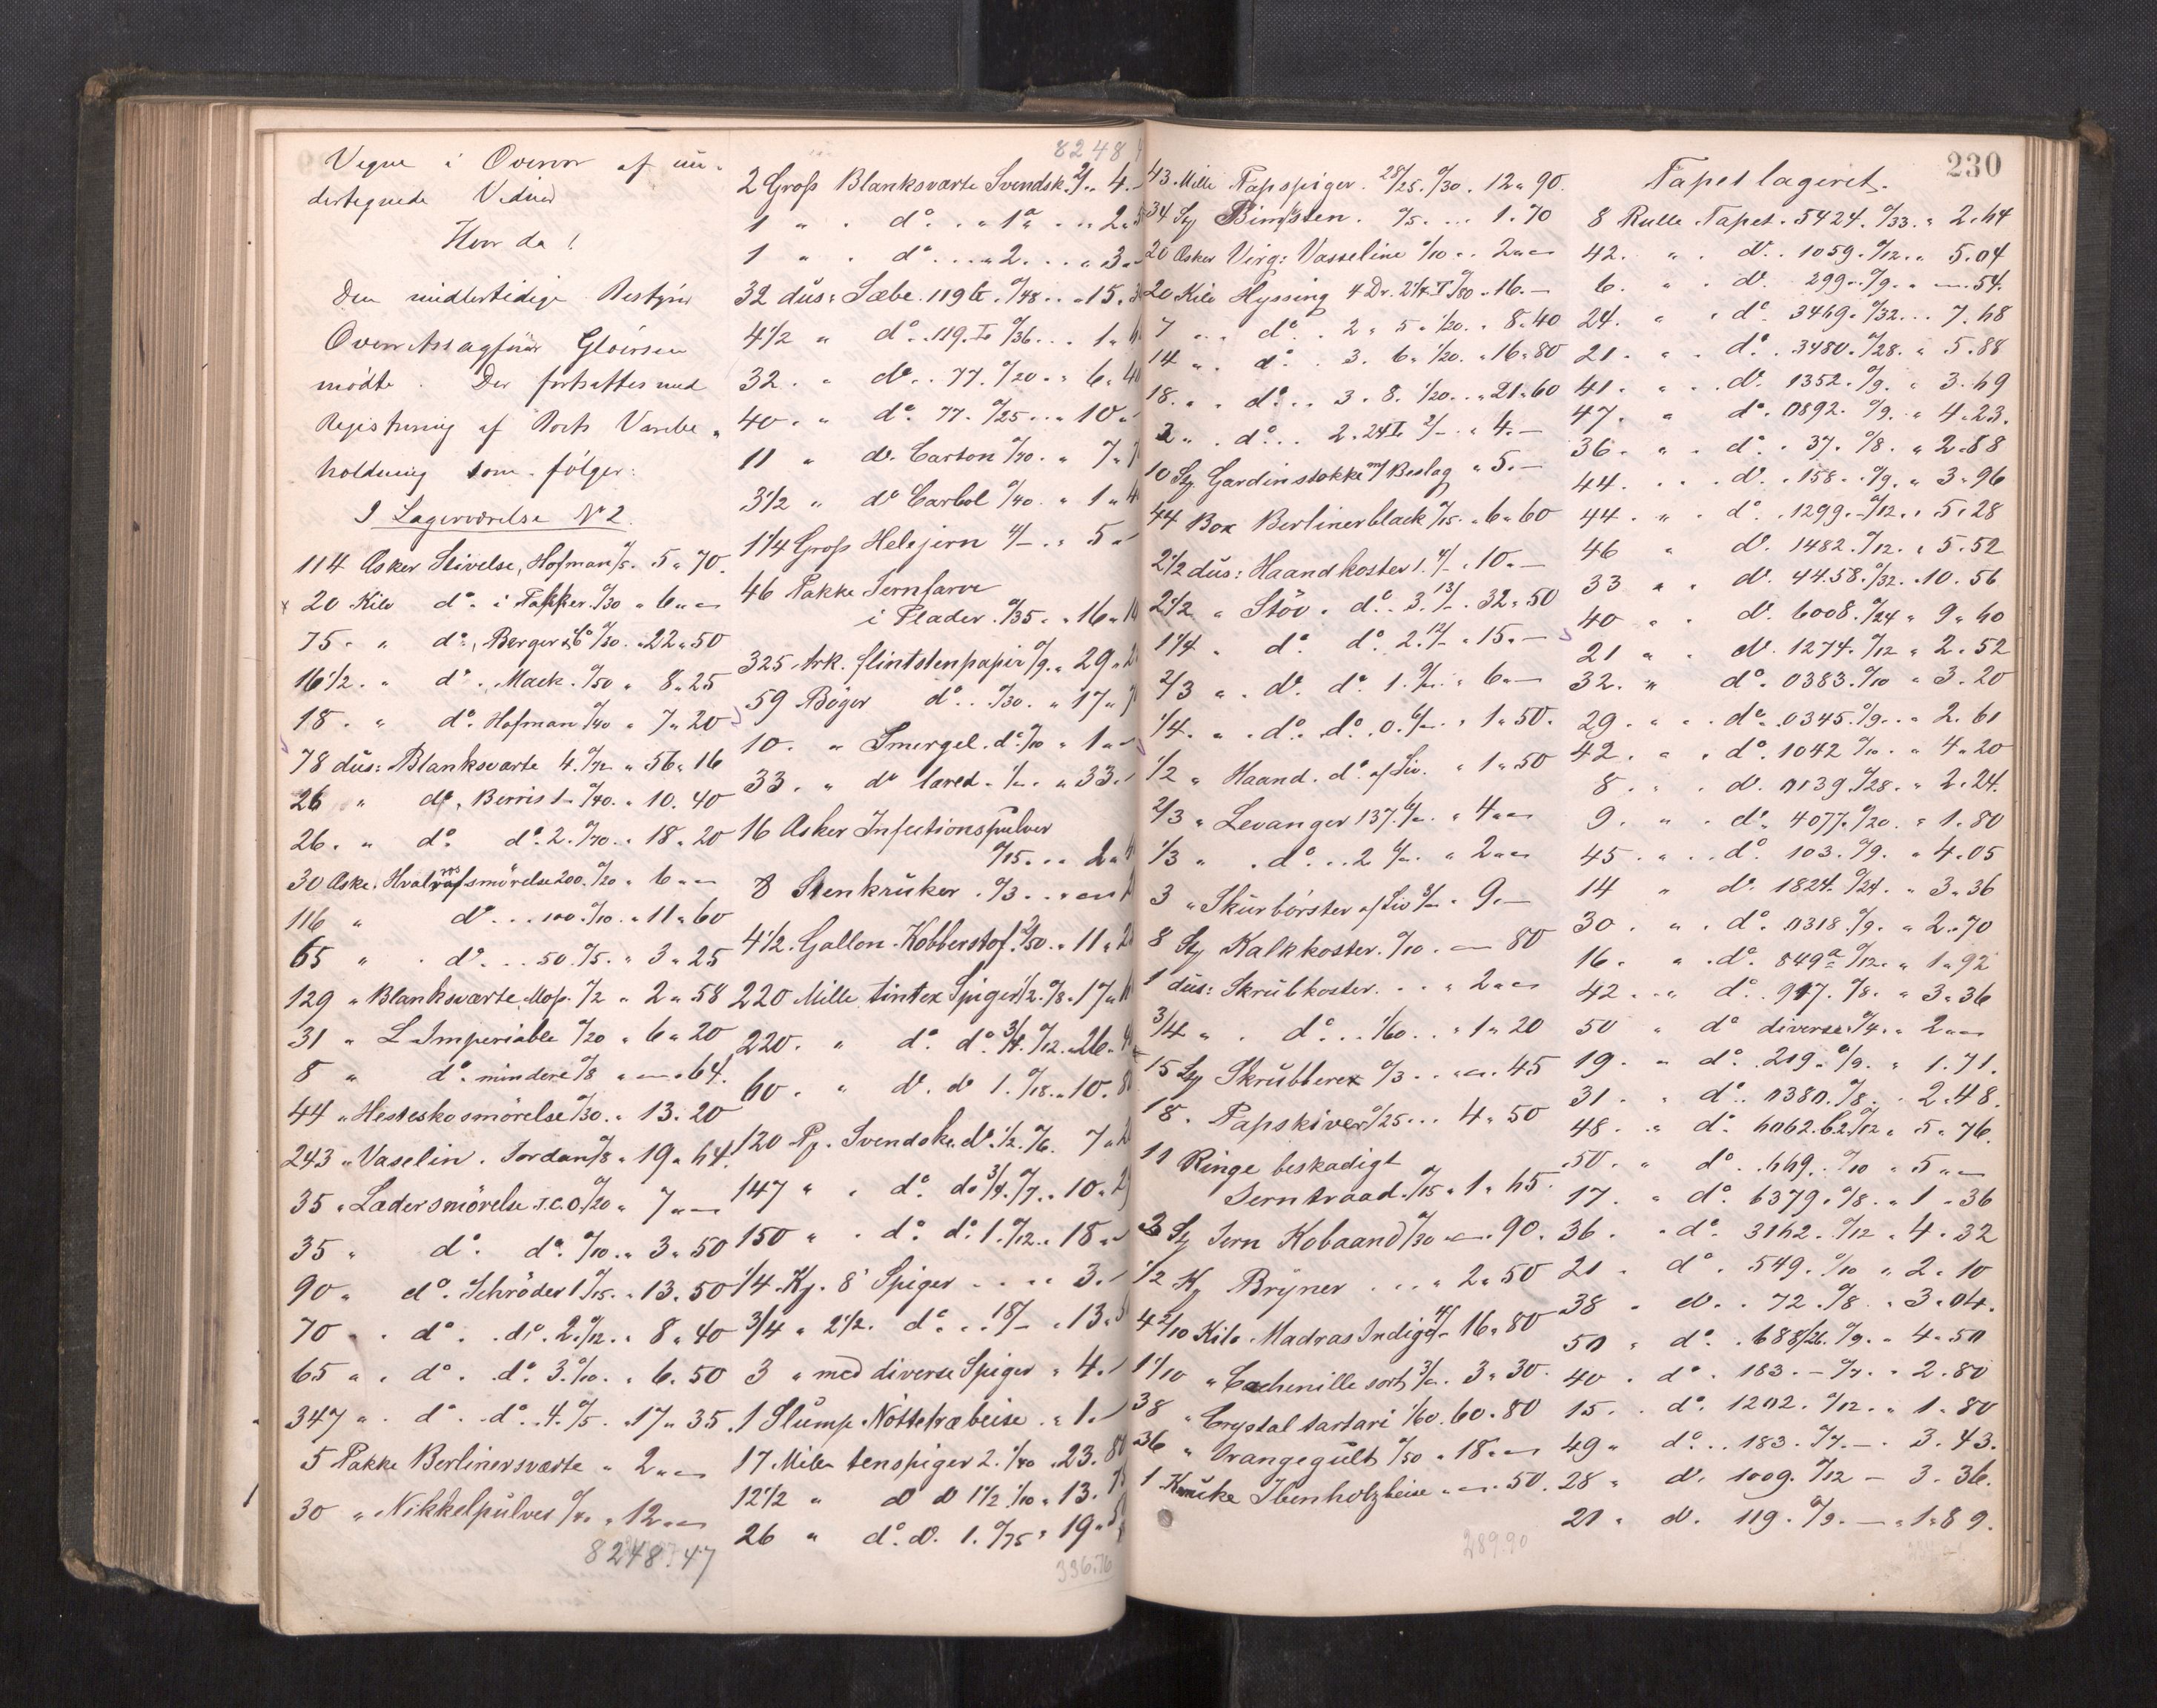 Vegne i Overvær af un-
dertegnede Vidner
Hvor da!
Den midlertidige Bestyrer
Overretssagfører Gløersen
mødte. Der fortsattes med
Registrering af Boets Varebe-
holdning som følger:
I Lagerværelse No 2.
114 Æsker Stivelse, Hofman /5. 5 " 70.
20 Kilo do i Pakker. 0/30 " 6 " —
75 " do, Berger & Co 0/30. 22 " 50
16 1/2 " do. Mack. 0/50 " 8 " 25
18 " do. Hofman 0/40 " 7 " 20
78 dus: Blanksværte 4. 0/72 " 56 " 16
26 " do, Berris 1 - 0/40. " 10. 40
26 " do do. 2. 0/70. " 18 " 20
30 Æske. Hvalrossmörelse 200. 0/20 " 6 " —
116 " do. . . 100. 0/10. " 11 " 60
65 " do. . . 50. 0/5. " 3 " 25
129 " Blanksværte Mop. 0/2 " 2 " 58
31 " L Imperiable 0/20 " 6 " 20
8 " do. mindere 0/8 " — " 64.
44 " Hesteskosmörelse 0/30. " 13. 20
243 " Vaselin. Jordan 0/8 " 19 " 44.
35 " Lædersmörelse J.C.O. 0/20 " 7 " —
35 " do. do. 0/10. " 3 " 50
90 " do. Schröder 1 0/15. " 13. 50
70 " do. do. 2. 0/12. " 8 " 40
65 " do. do. 3. 0/10. " 6. 50
347 " do. do. 4. 0/5. " 17 " 35.
5 Pakke Berlinersværte " 2 " —
30 " Nikkelpulver 0/40 " 12 " —
8248.47
8248
2 Gross Blanksværte Svendsk. 2/ " 4.
1 " do. " 1a " 2 "
1 " do. . . 2. . . " 3 "
32 dus: Sæbe. 119 b. 0/48. . " 15.
4 1/2 " do. 119. 0/36. . . 1 "
32 . " do. . 77. 0/20. " 6 " 40
40 . " do. 77. 0/25. . . 10 "
11 " do. Carton 0/70. " 7 " 7
3 1/2 " do Carbol 0/40. " 1 " 4
1 1/4 Gross Helsjern 4/ — " 5 "
46 Pakke Jernfarve
i Plader. 0/35. " 16 " 10
325 Ark. flintstenpapir 0/9. " 29 " 2
59 Böger do. . 0/30. " 17 " 7
10. " Smergel. do. 0/10 " 1 "
33. " do lared. 1/ — " 33.
16 Æsker Infectionspulver
0/15. . . 2 " 4
8 Stenkruker. 0/3. . " — 2
4 1/2. Gallon. Kobberstof. 2/50. " 11 " 2
220 Mille tintex Spiger 1/2. 0/8. " 17 "
220. " do. do. 3/4. 0/12. " 26.
60. " do. do 1. 0/18. " 10. 8
120 Pp. Svendske do. 1/2. 0/6. 7 " 2
147 " do. do. 3/4. 0/7. " 10 " 2
150 " do. do. 1. 0/12. " 18 "
1/4 Kg. 8" Spiger . . . . 3.
3/4 " 2 1/2. do. . . 18/ — " 13 " 5
3 " med diverse Spiger " 4.
1 Slump Nöttetræbeise. " 1.
17 Mille tenspiger 2. 1/40. " 23. 80
12 1/2 " do do 1 1/2 1/10 " 13. 75
26 " do. do. 1. 0/75 " 19 " 5
336.76
43. Mille Papspiger. 28/25. 0/30. 12 " 90.
34 Stg Bimssten. 0/5. . . 1. 70
20 Æsker Virg: Vasseline 0/10. . 2 " —
20 Kilo Hyssing 4 Dr. 24 0/80. " 16. —
7 " do. . 2 " 5 " 1/20. " 8. 40
14 " do. . 3. 6 " 1/20. " 16 " 80
18. " do. . 3. 8. 1/20. . " 21. 60
2 " do. . 2. 24 2/ — " 4. —
10 Stg. Gardinstokke m/ Beslag " 5. —
44 Box Berlinerblack 0/15. " 6 " 60
2 1/2 dus: Haandkoster 1. 4/ — " 10. —
2 1/2 " Stöv. do. . 3. 13/ — 32 " 50
1 1/4 " do. do. 2. 12/ — " 15. —
2/3 " do. do. 1. 9/ — " 6 " —
1/4. " do. do. 0. 6/ — " 1 " 50.
1/2 " Haand. do. af Siv. " 1 " 50
2/3 " Levanger 137. 6/ — " 4 " —
1/3 " do. . . 2 6/ — " 2 " —
3 " Skurbörster af Siv 3/ — " 9. —
8 Stg Kalkkoster. 0/10. — 80
1 dus: Skrubkoster. . . " 2 " —
3/4 " do. . . 1/60. . " 1 " 20
15 Stg Skrubberex 0/3. . " — 45
18. Papskiver 0/25. . . 4 " 50
11 Ringe beskadigt
Jerntraad. 0/15 " 1 " 65.
3 Stg Jern Kobaand 0/30 " — . 90.
1/2 Kg Bryner . . . " 2 " 50
4 2/10 Kilo Madras Indigo 4/ — 16 " 80
1 1/10 " Cochenille sort 3/ — . 3 " 30.
38 " Cryptal tartari 1/60. 60 " 80
36 " Orangegult 0/50 " 18 " —
1 Krukke Ibenholzbeise " — . 50.
289.90
230
Tapetlageret.
8 Rulle Tapet. 5424. 0/33. " 2 " 64
42. " do. . 1059. 0/12. " 5. 04
6. " do. 299. 0/9. " — . 54.
24. " do. 3469. 0/32. . . 7. 68
21. " do. . 3480. 0/28. " 5. 88
41. " do. 1352. 0/9. " 3. 69
47. " do. 0892. 0/9. " 4. 23.
36. " do. . 37. 0/8. " 2. 88
44. . . do. . 158. . 0/9. " 3 " 96
44. " do. . 1299. 0/12. . 5. 28
46 " do. 1482. 0/12. " 5. 52
33 " do. 44.58. 0/32. " 10. 56
40 " do. 6008. 0/24 " 9 " 60
21 " do. 1274. 0/12 " 2. 52
32. " do. 0383. 0/10 " 3. 20
29. " do. . 0345. 0/9. " 2. 61
42. " do. 1042 0/10. " 4 " 20
8. " do. 0139. 0/28. " 2. 24.
9. " do. 4077. 0/20. " 1. 80
45. " do. 103. 0/9. " 4. 05
14 " do. 1824. 0/24. " 3 " 36
30. " do. . 0318. 0/9. " 2. 70
16. " do. 849a 0/12. " 1 " 92
42. " do. . 917. 0/8. " 3 " 36
50 " do diverse 0/4. " 2 " —
19. " do. . 219. 0/9. " 1. 71.
31. " do. . 0380. 0/8. . 2. 48.
48. " do. 6062.62. 0/12 " 5 " 76.
50. " do. . 669. . 0/10 " 5 " —
17. " do. 6379. 0/8. " 1 " 36
36. " do. 3162. 0/12 " 4. 32
21 . do. 549. 0/10 " 2. 10
38 " do. . 72. 0/8. " 3 " 04.
50 " do. . 688/26. 0/9. " 4 " 50
40. do. 183. — 0/7. " 2. 80
15. . do. 1202. 0/12. " 1. 80
49 " do. . . 183. 0/7. — . 3. 43.
28 " do. 1009. 0/12 — 3. 36.
21 " do. 119. 0/9. — " 1 " 89.